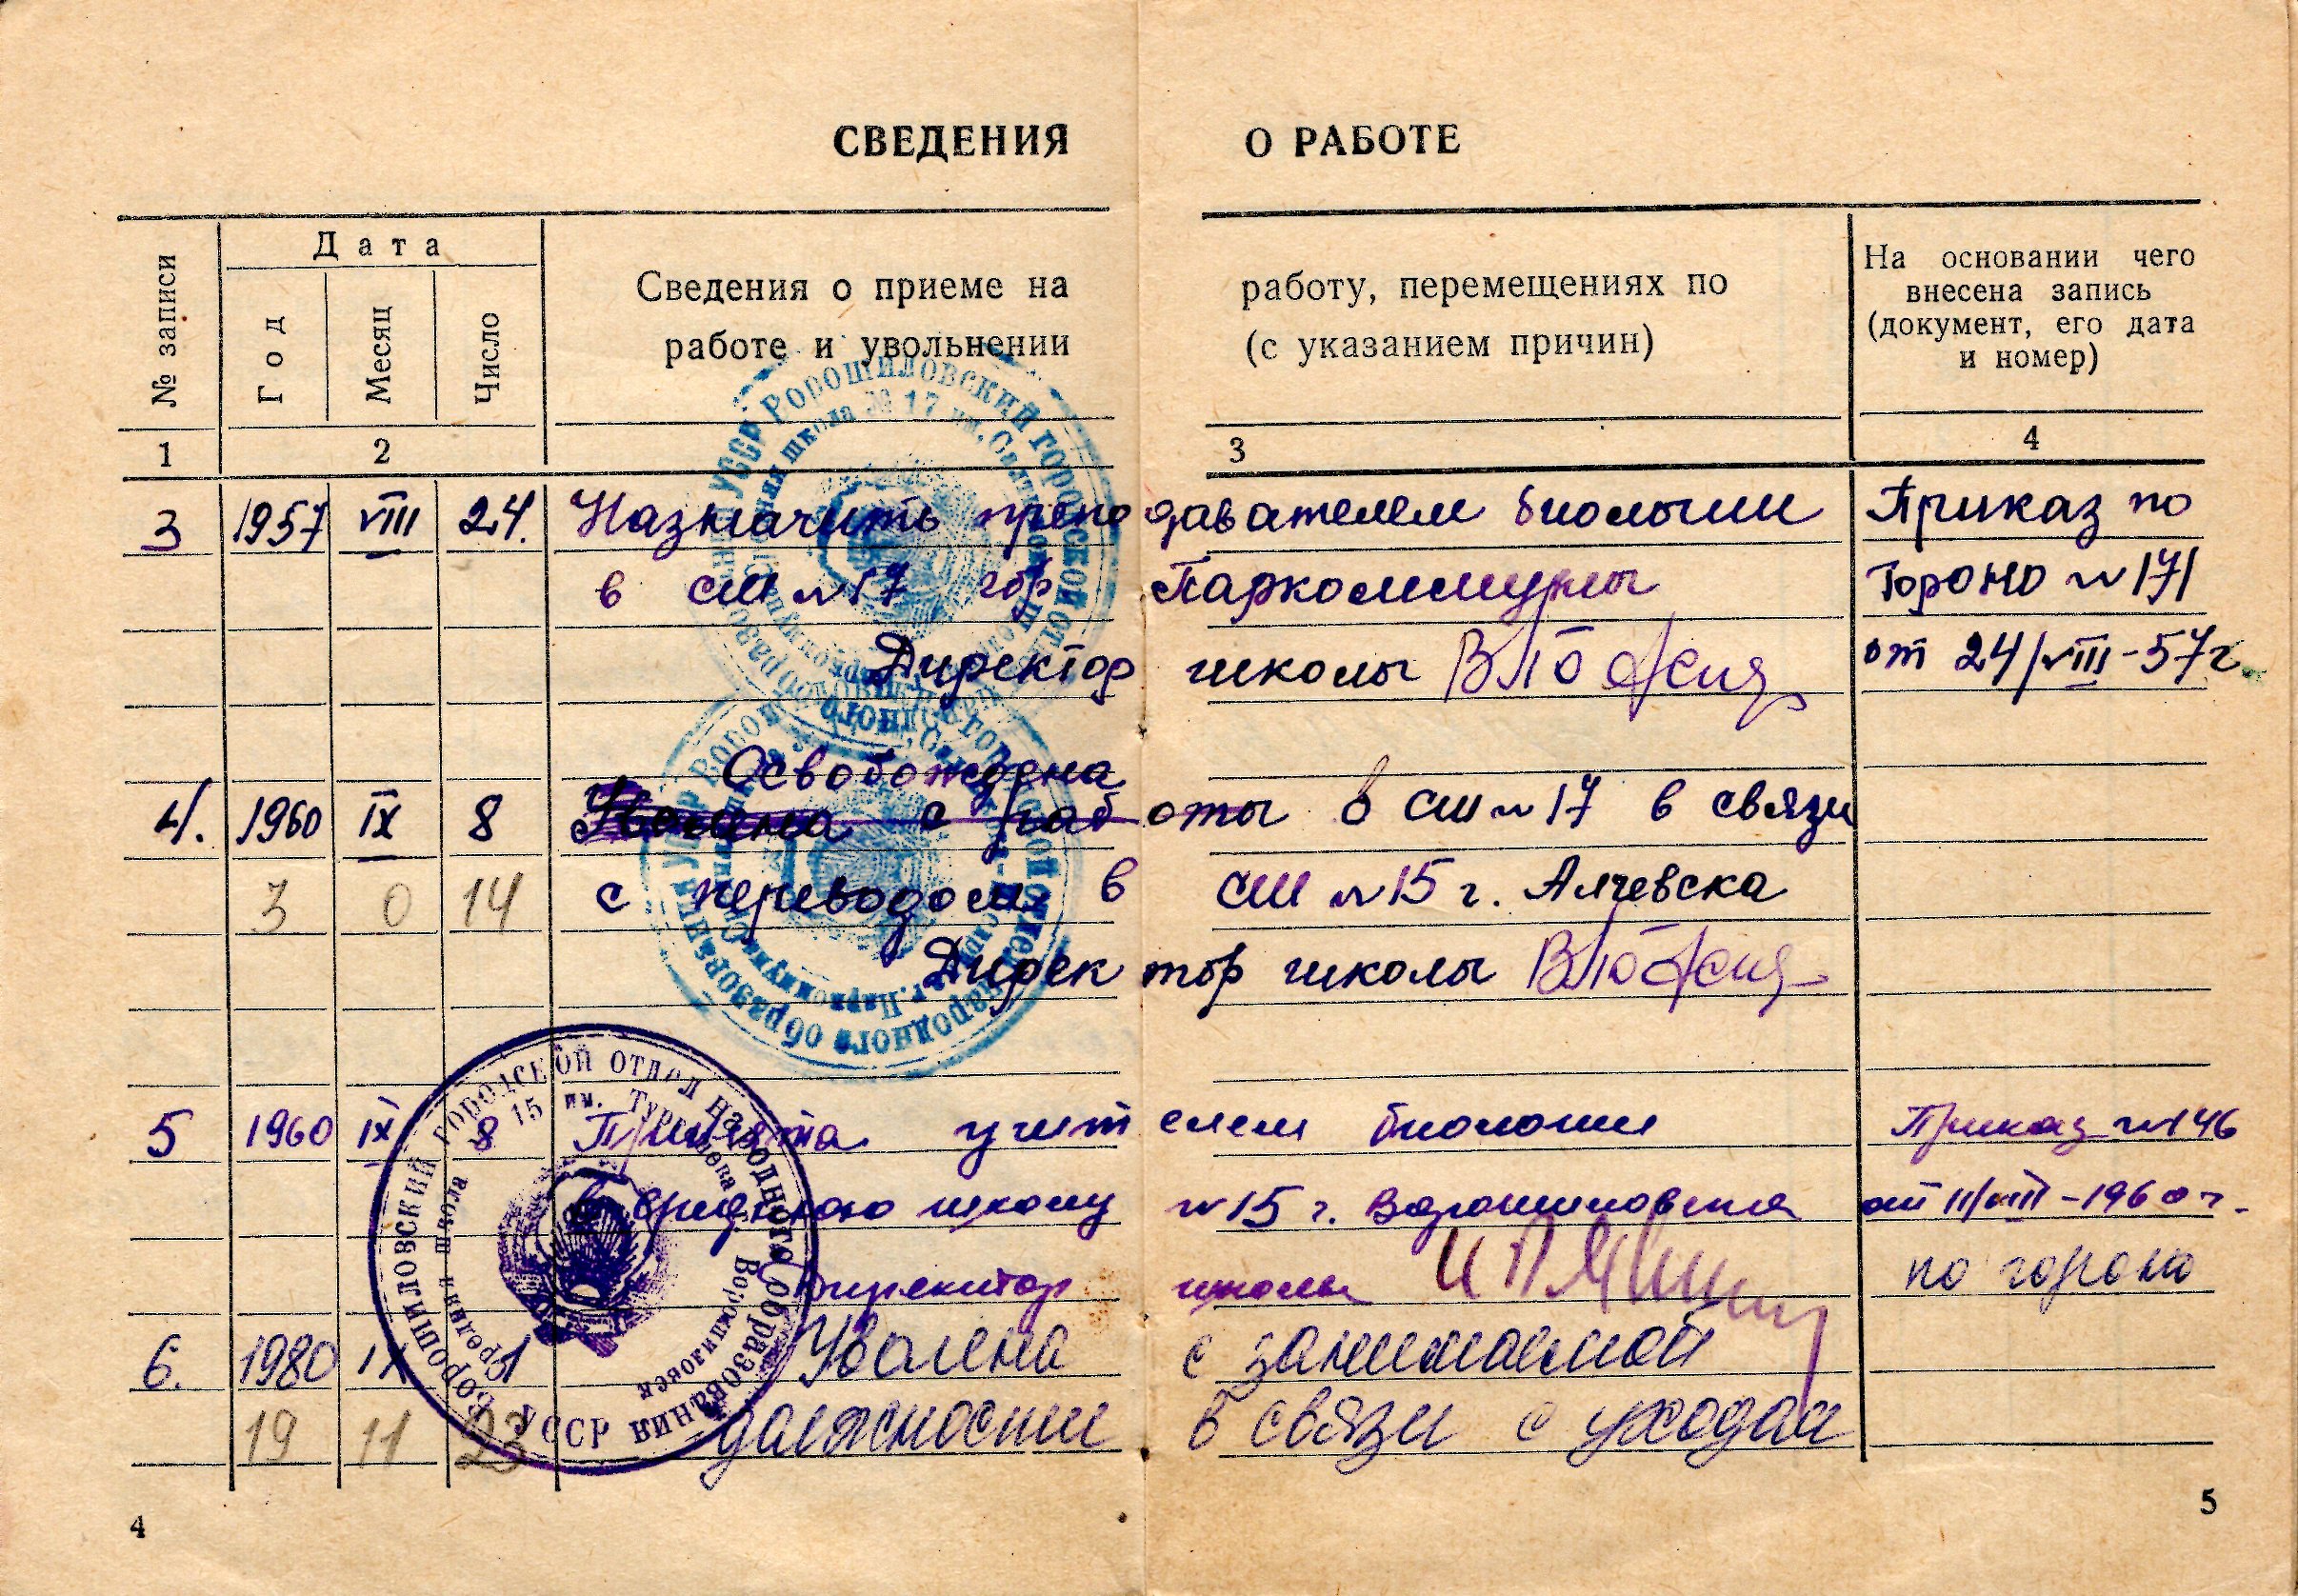 СВЕДЕНИЯ О РАБОТЕ
№ записи
Дата
Год
Месяц
Число
Сведения о приеме на работу, перемещениях по
работе и увольнении (с указанием причин)
На основании чего
внесена запись
(документ, его дата
и номер)
1 2 3 4
3 1957 VIII 24. Назначить преподавателем биологии Приказ по
в СШ №17 гор Паркоммуны Гороно №171
Директор школы от 24/VIII-57г.
Освобождена
4. 1960 IX 8 Уволена с работы в СШ №17 в связи
3 0 14 с переводом в СШ №15 г. Алчевска
Директор школы
5 1960 IX 8 Принята учителем биологии Приказ №146
в среднюю школу №15 г. Ворошиловска от 11/VIII-1960г.
Директор школы по гороно
6. 1980 IX 1 Уволена с занимаемой
19 11 23 должности в связи с уходом
УССР Ворошиловский городской отдел народного образования
школа № 17 им.
г. Паркоммуна
УССР ВОРОШИЛОВСКИЙ ГОРОДСКОЙ ОТДЕЛ НАРОДНОГО ОБРАЗОВАНИЯ
Средняя школа 15 им. Тургенева г. Ворошиловск
4
5